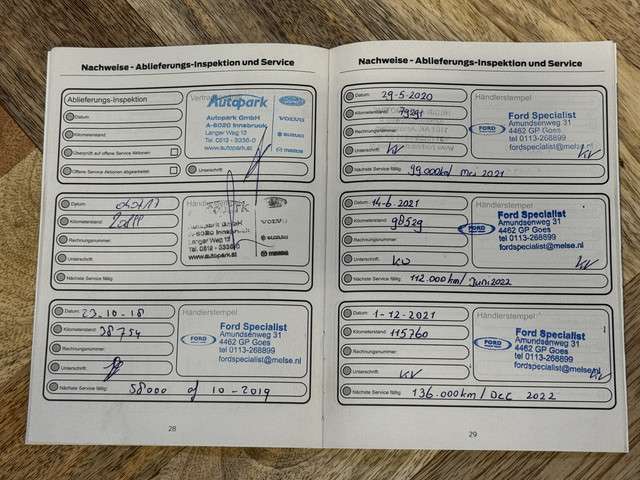 Nachweise - Ablieferungs-Inspektion und Service
Ablieferungs-Inspektion
Datum:
Kilometerstand:
Überprüft auf offene Service Aktionen
Offene Service Aktionen abgearbeitet
Autopark
Autopark GmbH
A-6020 Innsbruck
Langer Weg 12
Tel. 0512 - 3336-0
www.autopark.at
Ford
VOLVO
SUZUKI
mazda
Unterschrift:
Datum:
Kilometerstand:
Rechnungsnummer:
Unterschrift:
Nächste Service fällig:
GmbH
6020 Innsbruck
Langer Weg 12
Tel. 0512 - 3336
www.autopark.at
VOLVO
SUZUKI
mazda
Datum: 23-10-18
Kilometerstand: 38754
Rechnungsnummer:
Unterschrift:
Nächste Service fällig: 58000 of 10-2019
Händlerstempel
FORD
Ford Specialist
Amundsenweg 31
4462 GP Goes
tel 0113-268899
fordspecialist@melse.nl
28
Nachweise - Ablieferungs-Inspektion und Service
Datum: 29-5-2020
Kilometerstand: 79291
Rechnungsnummer:
Unterschrift: KV
Nächste Service fällig: 99.000km/ Mei 2021
Händlerstempel
FORD
Ford Specialist
Amundsenweg 31
4462 GP Goes
tel 0113-268899
fordspecialist@melse.nl
KV
Datum: 14-6-2021
Kilometerstand: 98529
Rechnungsnummer:
Unterschrift: KV
Nächste Service fällig: 112.000km/ Juni 2022
Händlerstempel
FORD
Ford Specialist
Amundsenweg 31
4462 GP Goes
tel 0113-268899
fordspecialist@melse.nl
KV
Datum: 1-12-2021
Kilometerstand: 115760
Rechnungsnummer:
Unterschrift: KV
Nächste Service fällig: 136.000km/ Dec 2022
Händlerstempel
FORD
Ford Specialist
Amundsenweg 31
4462 GP Goes
tel 0113-268899
fordspecialist@melse.nl
KV
29